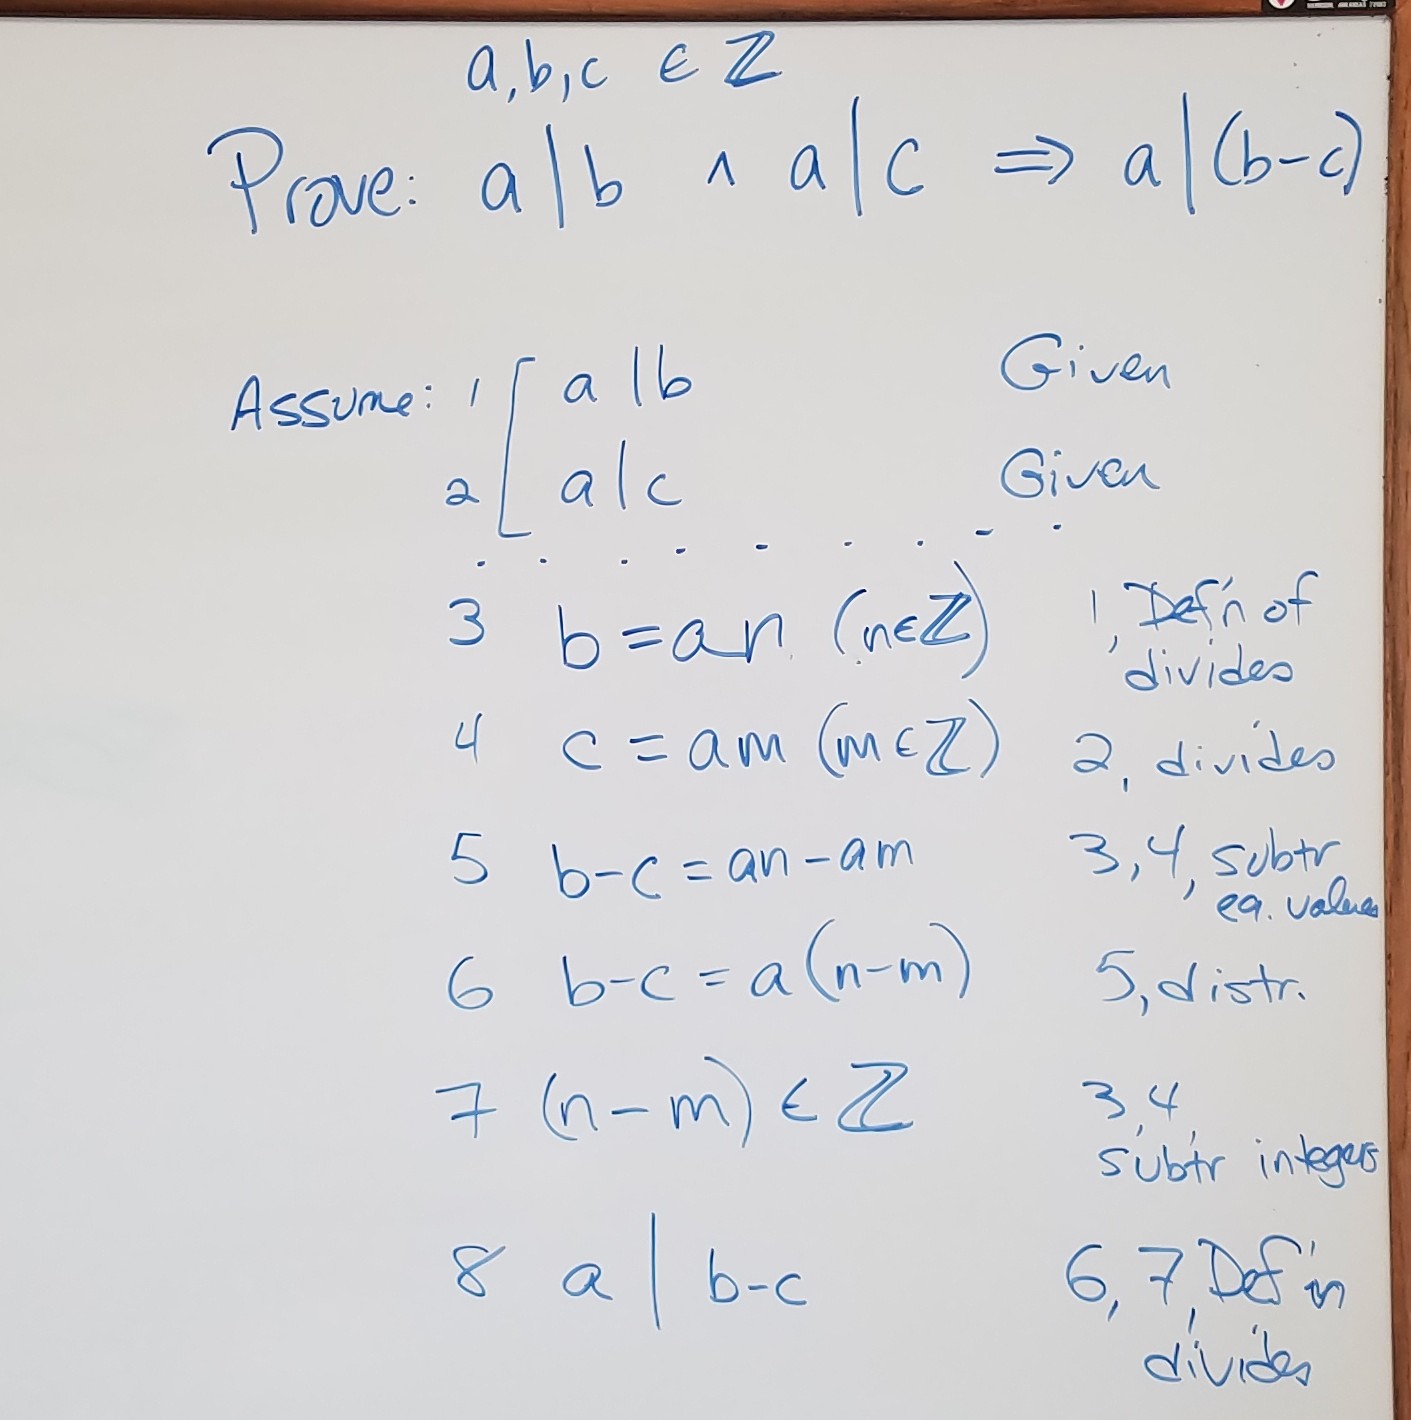 a,b,c ∈ ℤ
Prove: a|b ∧ a|c ⇒ a|(b-c)
Assume: 1 [ a|b Given
2 [ a|c Given
3 b=an (n∈ℤ) 1, Def'n of
divides
4 c=am (m∈ℤ) 2, divides
5 b-c=an-am 3,4, subtr
eq. values
6 b-c=a(n-m) 5, distr.
7 (n-m)∈ℤ 3,4,
subtr integers
8 a | b-c 6,7, Def'n
divides